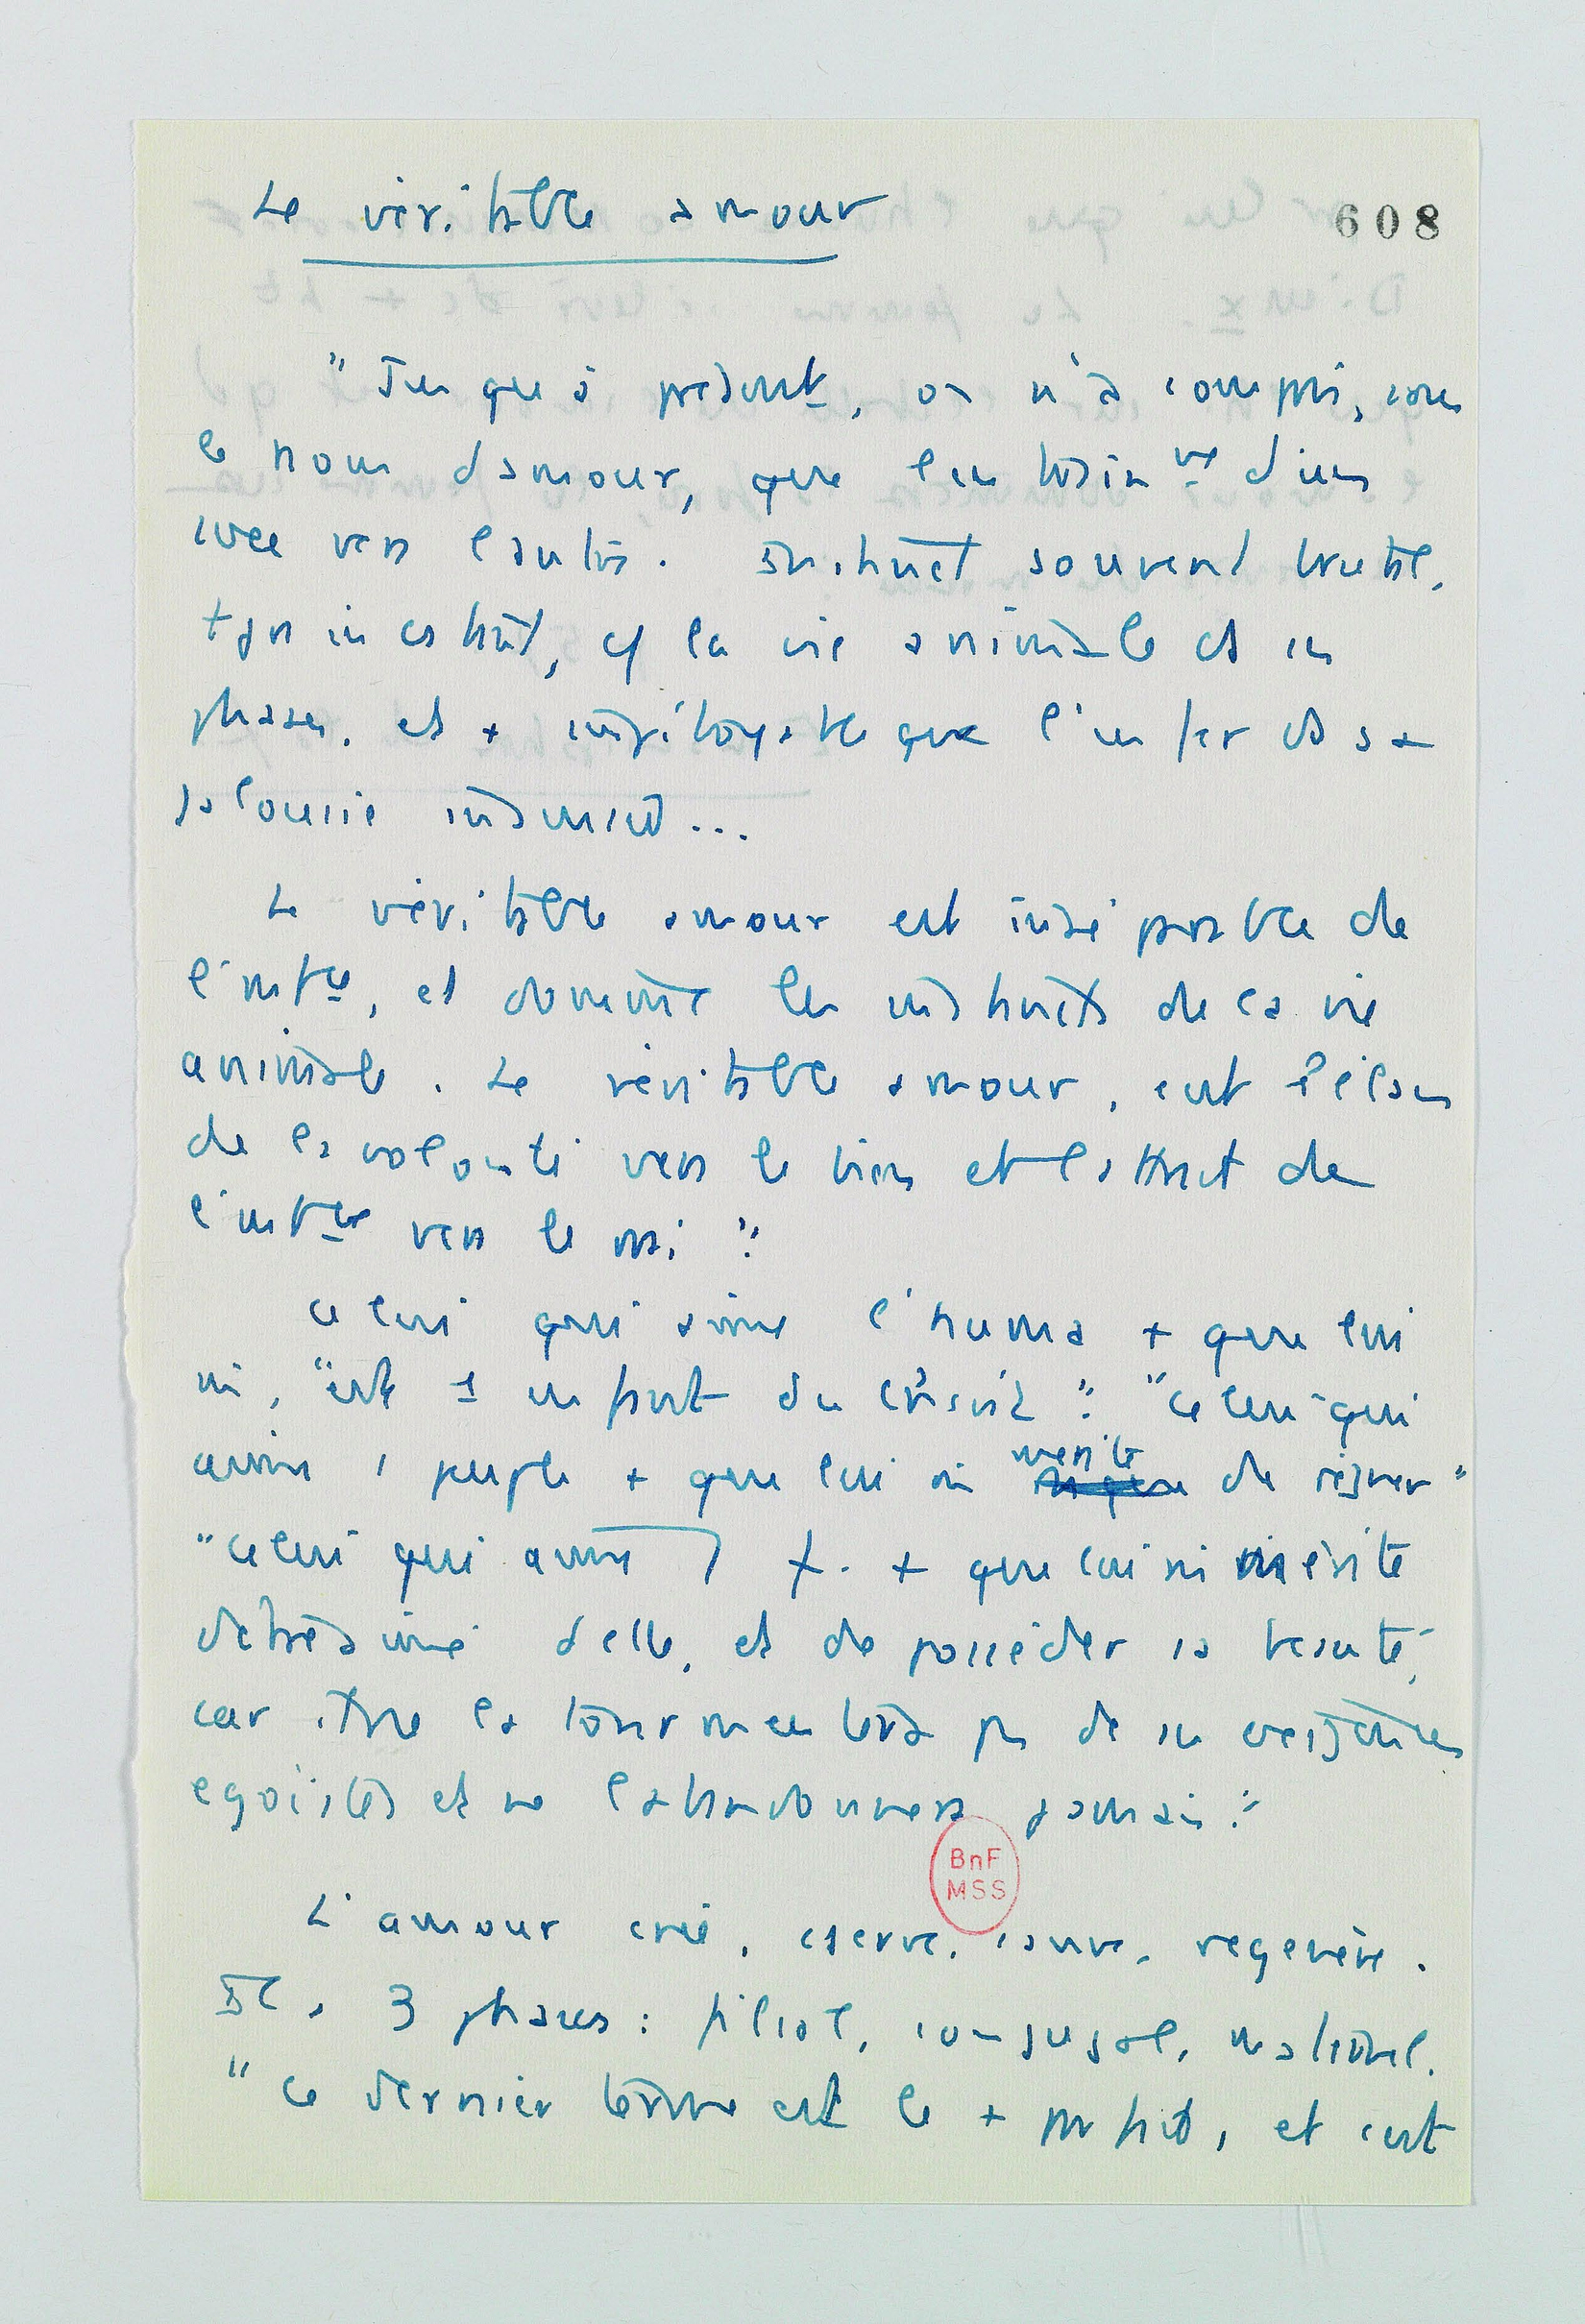 Le véritable amour
608
"Jusqu'à présent, on n'a compris, sous
le nom d'amour, que l'entraînᵗ d'un
sexe vers l'autre. Instinct souvent brutal,
et la vie animale et ses
phases, et + impitoyable que l'enfer ds sa
jalousie insensée...
Le véritable amour est inséparable de
l'intᶜᵉ, et domine les instincts de la vie
animale. Le véritable amour, c'est l'élan
de la volonté vers le bien et l'attrait de
l'intᶜᵉ vers le vrai."
Celui qui aime l'huma + que lui
mi, "est 1 enfant du Christ". "Celui qui
aime 1 peuple + que lui mi mérite de régner"
"Celui qui aime 1 f. + que lui mi mérite
d'être aimé d'elle, et de posséder sa beauté,
car il ne la tourmentera pas de ses exigences
égoïstes et ne l'abandonnera jamais."
BnF
MSS
L'amour crée, cserve, sauve, regénère.
Il a 3 phases : filial, conjugal, maternel.
"Ce dernier terme est le + parfait, et c'est